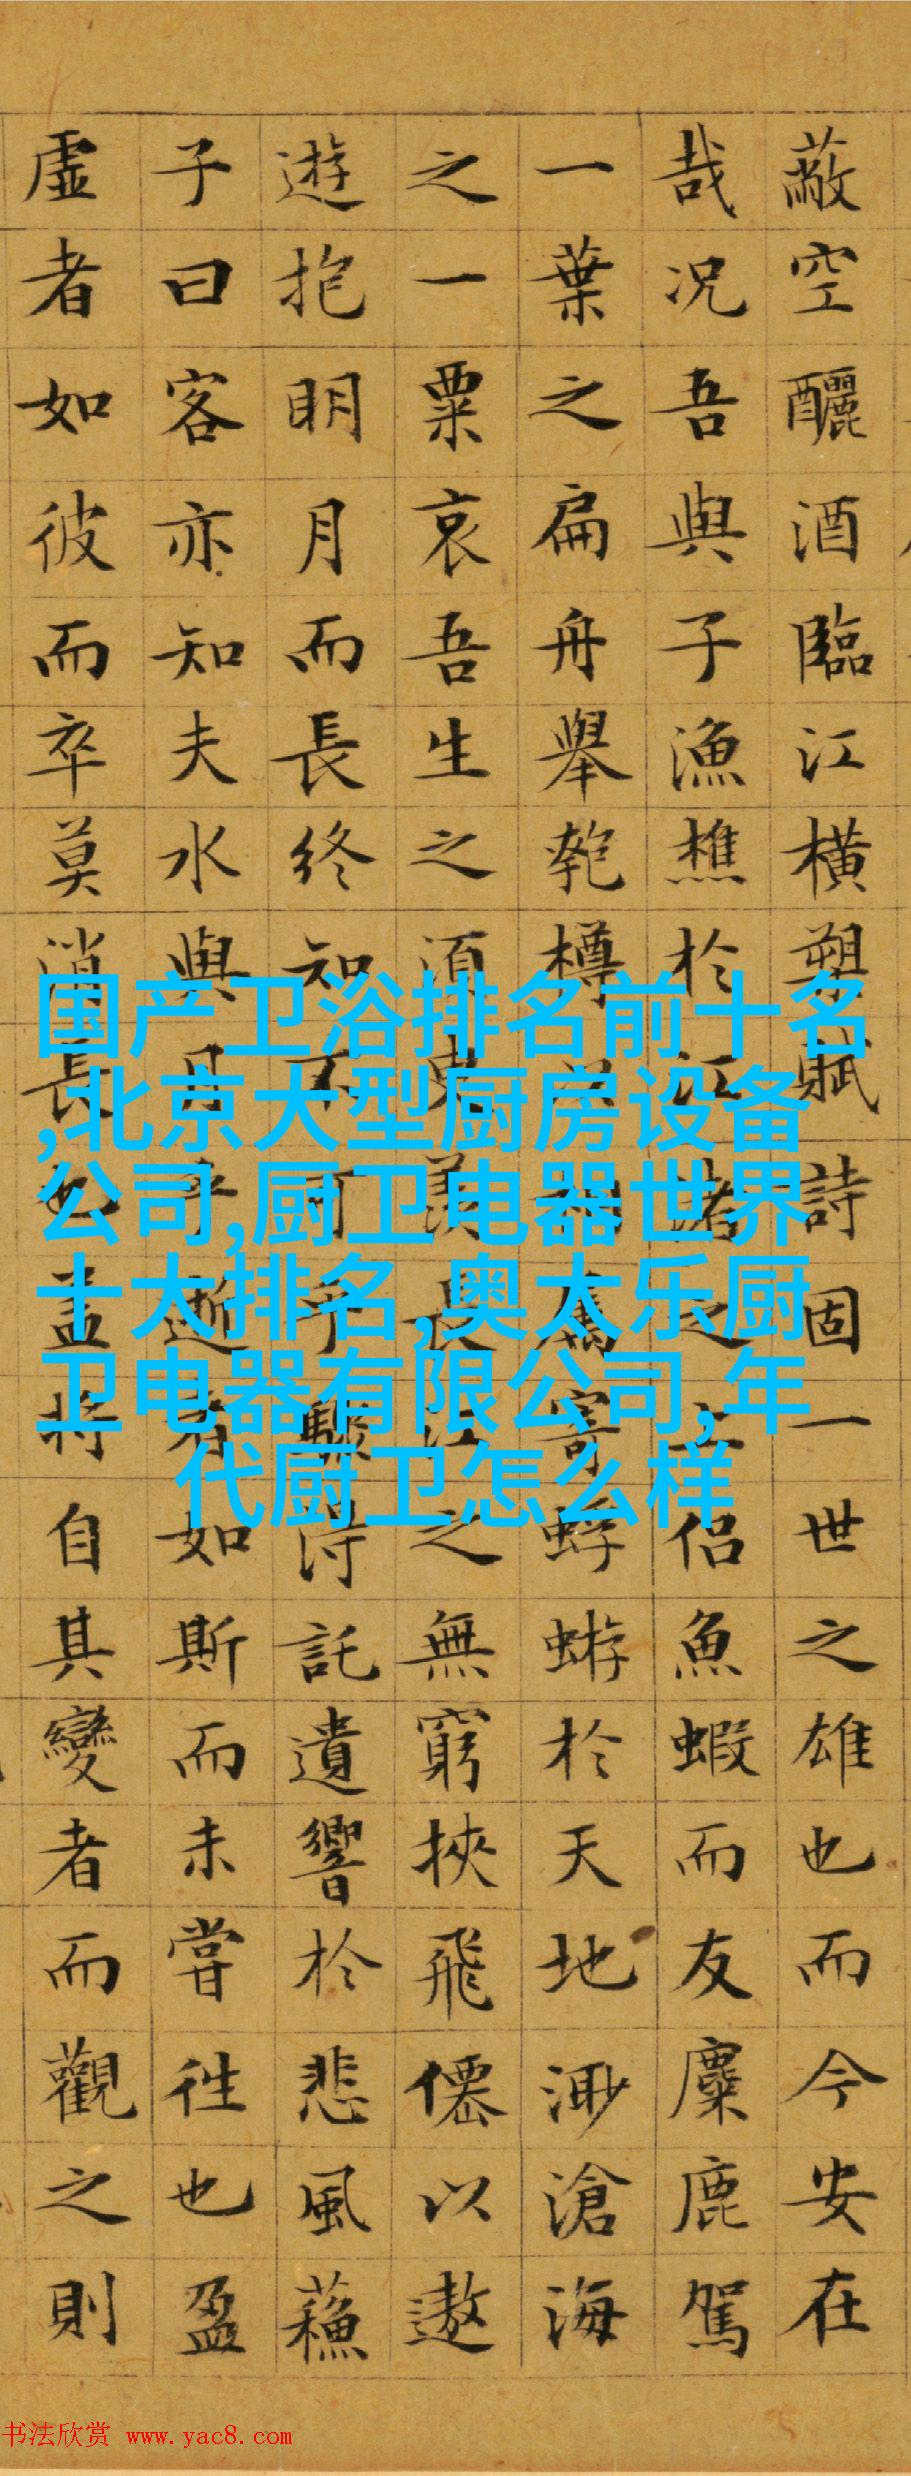 蔽空釃酒臨江橫槊賦詩固一世之雄也而今安在
哉况吾與子漁樵於江渚之上侣魚蝦而友麋鹿駕
一葉之扁舟舉匏樽以相屬寄蜉蝣於天地渺滄海
之一粟哀吾生之須臾羡長江之無窮挾飛僊以遨
遊抱明月而長終知不可乎驟得託遺響於悲風蘇
子曰客亦知夫水與月乎逝者如斯而未嘗往也盈
虛者如彼而卒莫消長也盖將自其變者而觀之則
国产卫浴排名前十名
,北京大型厨房设备
公司,厨卫电器世界
十大排名,奥太乐厨
卫电器有限公司,年
代厨卫怎么样
书法欣赏 www.yac8.com